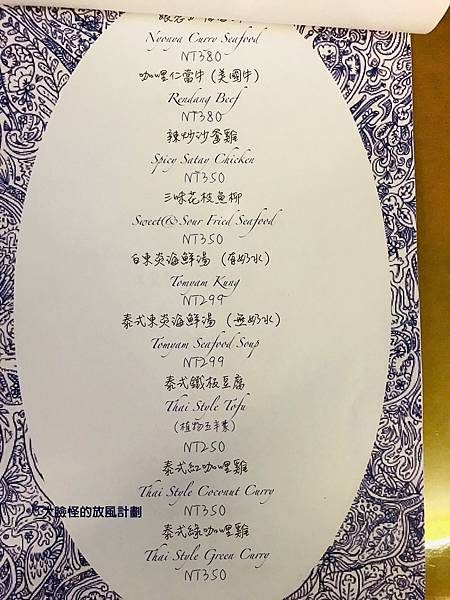 Nyonya Curry Seafood
NT380
咖哩仁當牛 (美國牛)
Rendang Beef
NT380
辣炒沙爹雞
Spicy Satay Chicken
NT350
三味花枝魚柳
Sweet&Sour Fried Seafood
NT350
白東炎海鮮湯 (有奶水)
Tomyam Kung
NT299
泰式東炎海鮮湯 (無奶水)
Tomyam Seafood Soup
NT299
泰式鐵板豆腐
Thai Style Tofu
(植物五辛素)
NT250
泰式紅咖哩雞
Thai Style Coconut Curry
NT350
大臉怪的放風計劃
泰式綠咖哩雞
Thai Style Green Curry
NT350